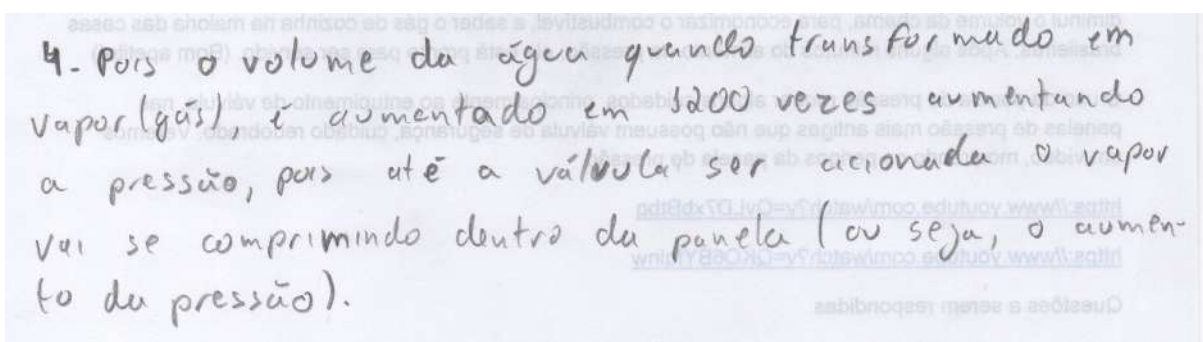 4- Pois o volume da água quando transformado em
vapor (gás), é aumentado em 1200 vezes aumentando
a pressão, pois até a válvula ser acionada o vapor
vai se comprimindo dentro da panela (ou seja, o aumen-
to da pressão).